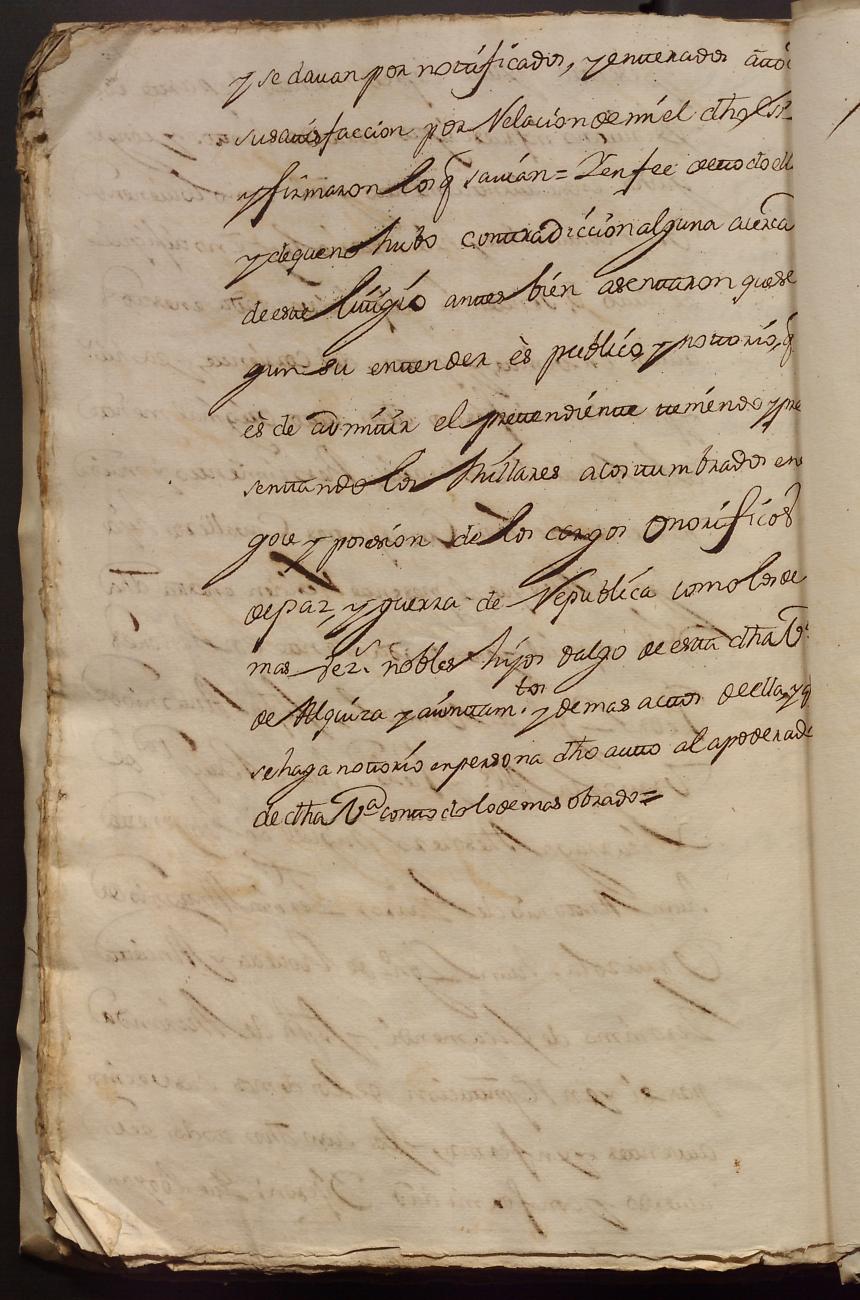 y se davan por nottificados, y enterados a ttoda
su sattisfaccion por Relacion de mi el dho Essno
y firmaron los q̃ savian = Y en fee de ttodo ello
y de que no hubo conttradiccion alguna acerca
de este littigio antes bien asenttaron que se
gun su entender es publico, y nottorio, q̃
es de admittir el prettendiente tteniendo y pre
senttando los Millares acosttumbrados en el
goze y posesion de los cargos Onorificos
de paz, y guerra de Republica como los de
mas vezs. nobles hijos dalgo de esta dha Va.
de Alquiza y aiunttam.tos y demas acttos de ella, y q̃
se haga nottorio en persona dho autto al apoderado
de dha Va con ttodo lo demas obrado =